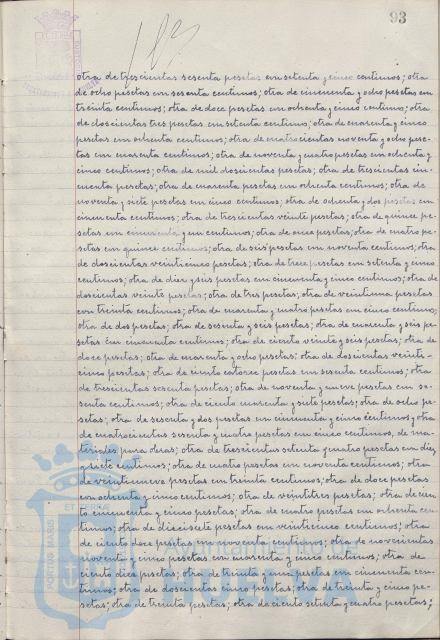 93
otra de trescientas sesenta pesetas con setenta y cinco centimos; otra
de ocho pesetas con sesenta centimos; otra de cincuenta y ocho pesetas con
treinta centimos; otra de doce pesetas con ochenta y cinco centimos; otra
de doscientas tres pesetas con setenta centimos; otra de cuarenta y cinco
pesetas con ochenta centimos; otra de cuatrocientas noventa y ocho pese-
tas con cuarenta centimos; otra de noventa y cuatro pesetas con ochenta y
cinco centimos; otra de mil doscientas pesetas; otra de trescientas cin-
cuenta pesetas; otra de cuarenta pesetas con ochenta centimos; otra de
noventa y siete pesetas con cinco centimos; otra de ochenta y dos pesetas con
cincuenta centimos; otra de trescientas veinte pesetas; otra de quince pe-
setas con cincuenta y un centimos; otra de once pesetas; otra de cuatro pe-
setas con quince centimos; otra de seis pesetas con noventa centimos; otra
de doscientas veinticinco pesetas; otra de trece pesetas con setenta y cinco
centimos; otra de diez y seis pesetas con cincuenta y cinco centimos; otra de
doscientas veinte pesetas; otra de tres pesetas; otra de veintiuna pesetas
con treinta centimos; otra de cuarenta y cuatro pesetas con cinco centimos;
otra de dos pesetas; otra de sesenta y seis pesetas; otra de cuarenta y seis pe-
setas con cincuenta centimos; otra de ciento veinte y seis pesetas; otra de
doce pesetas; otra de cuarenta y ocho pesetas; otra de doscientas veinti-
cinco pesetas; otra de ciento catorce pesetas con sesenta centimos; otra
de trescientas sesenta pesetas; otra de noventa y nueve pesetas con se-
senta centimos; otra de ciento cuarenta y siete pesetas; otra de ocho pe-
setas; otra de sesenta y dos pesetas con cincuenta y cinco centimos y otra
de cuatrocientas sesenta y cuatro pesetas con cinco centimos, de ma-
teriales para obras; otra de trescientas setenta y cuatro pesetas con diez
y siete centimos; otra de cuatro pesetas con noventa centimos; otra
de veintinueve pesetas con treinta centimos; otra de doce pesetas
con ochenta y cinco centimos; otra de veintitres pesetas; otra de cien-
to cincuenta y cinco pesetas; otra de cuatro pesetas con ochenta cen-
timos; otra de diecisiete pesetas con veinticinco centimos; otra
de ciento doce pesetas con noventa centimos; otra de novecientas
noventa y cinco pesetas con cuarenta y cinco centimos; otra de
ciento diez pesetas; otra de treinta y una pesetas con cincuenta cen-
timos; otra de doscientas cinco pesetas; otra de treinta y cinco pe-
setas; otra de treinta pesetas; otra de ciento setenta y cuatro pesetas;
PORTUS MARIS
ET TERRAE